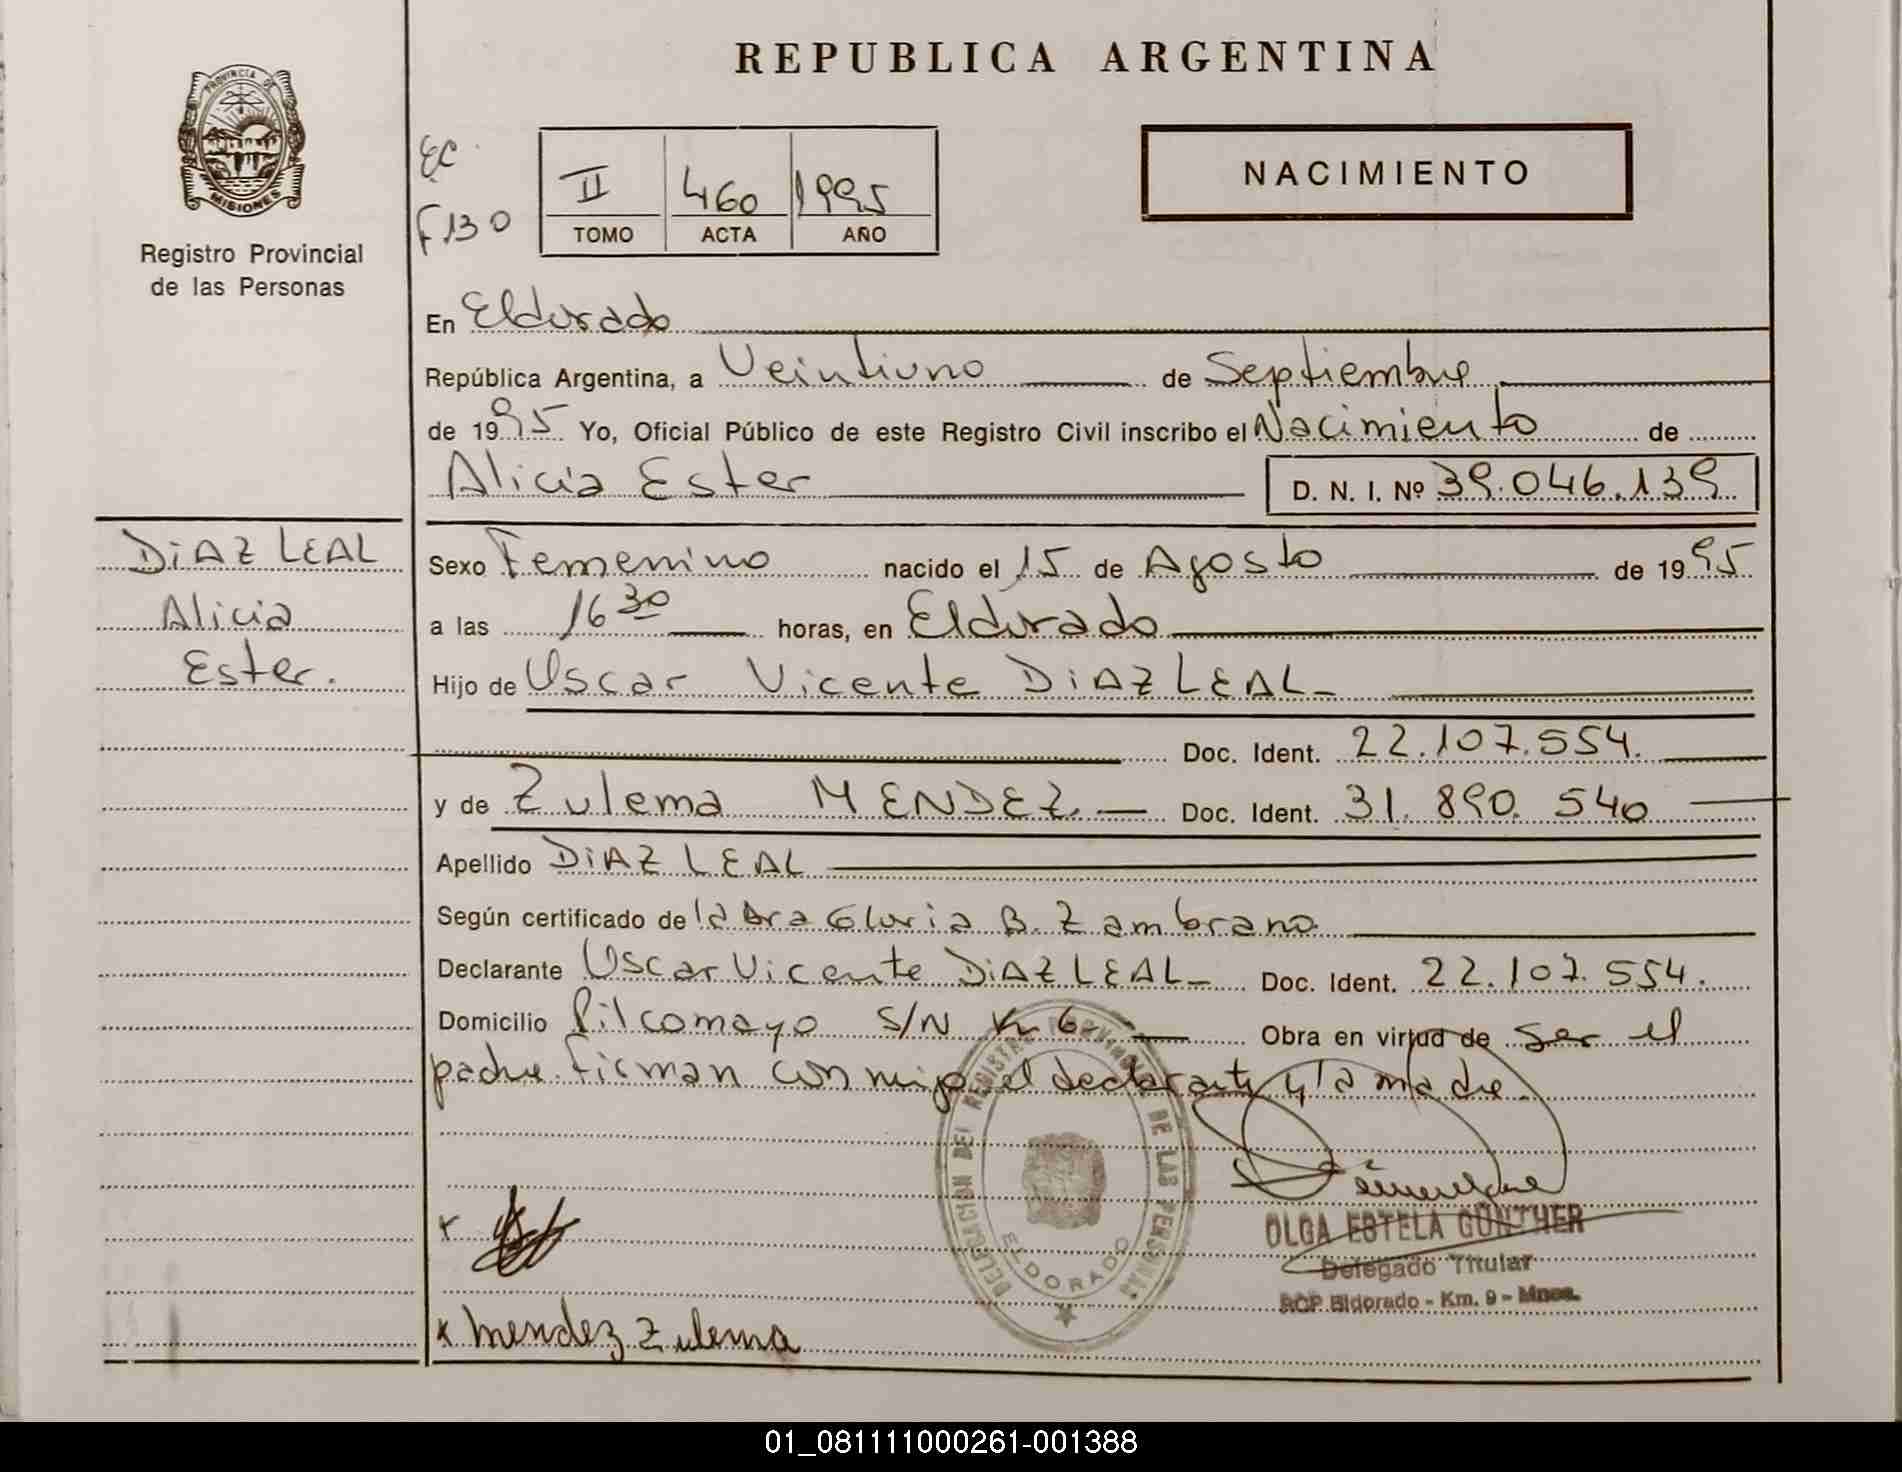 REPUBLICA ARGENTINA
PROVINCIA DE
MISIONES
Registro Provincial
de las Personas
EC
F130
II 460 1995
TOMO ACTA AÑO
NACIMIENTO
En Eldorado
República Argentina, a Veintiuno de Septiembre
de 1995 Yo, Oficial Público de este Registro Civil inscribo el Nacimiento de
Alicia Ester D. N. I. Nº 39.046.139
DiAZ LEAL
Alicia
Ester.
Sexo Femenino nacido el 15 de Agosto de 1995
a las 16 30 horas, en Eldorado
Hijo de Oscar Vicente DiAZ LEAL
Doc. Ident. 22.107.554.
y de Zulema MENDEZ Doc. Ident. 31.890.540
Apellido DiAZ LEAL
Según certificado de la Dra Gloria B. Zambrano
Declarante Oscar Vicente DiAZ LEAL Doc. Ident. 22.107.554.
Domicilio Pilcomayo S/N Km 6 Obra en virtud de ser el
padre. Firman con migo el declarante y la madre.
DELEGACION DEL REGISTRO PROVINCIAL DE LAS PERSONAS
ELDORADO
OLGA ESTELA GÜNTHER
Delegado Titular
RCP. Eldorado - Km. 9 - Mnes.
x Mendez Zulema
01_081111000261-001388